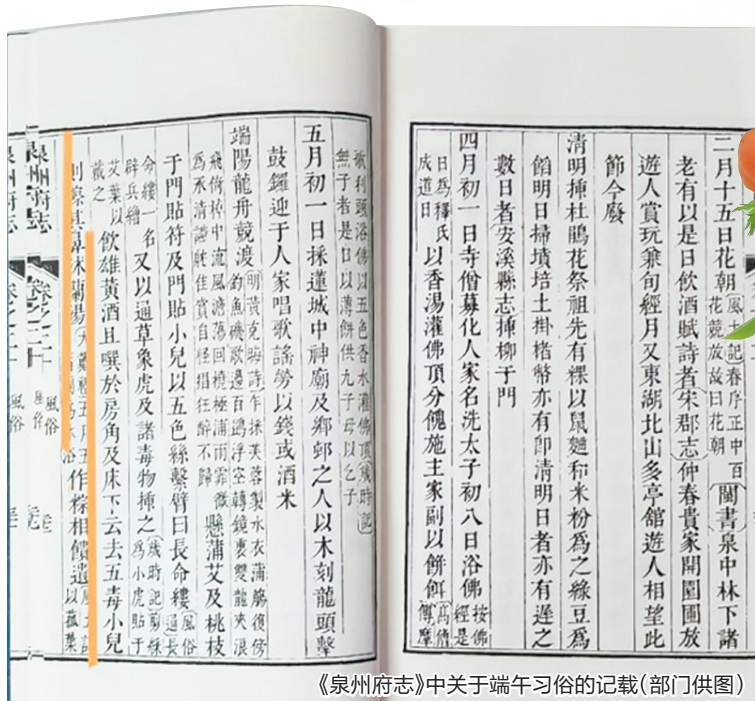 二月十五日花朝風土記春序正中百花競放故曰花朝閩書泉中林下諸
老有以是日飲酒賦詩者宋郡志仲春貴家開園囿放
遊人賞玩兼旬經月又東湖北山多亭館遊人相望此
節今廢
清明揷杜鵑花祭祖先有粿以鼠麯和米粉為之綠豆為
餡明日掃墳培土掛楮幣亦有卽清明日者亦有遲之
數日者安溪縣志揷柳于門
四月初一日寺僧募化人家名洗太子初八日浴佛按佛經是
日為釋氏成道日以香湯灌佛頂分餽施主家副以餅餌高僧傳摩
利頭浴佛以五色香水灌佛頂歲時記無子者是日以薄餅供九子母以乞子
五月初一日採蓮城中神廟及鄉邨之人以木刻龍頭擊
鼓鑼迎于人家唱歌謠勞以錢或酒米
端陽龍舟競渡明黃克晦詩乍採芙蓉製水衣蒲觴復傍釣魚磯歌邊百鷁浮空轉鏡裏雙龍夾浪
飛倚棹中流風澹蕩回橈極浦雨霏微為承清讌躭佳賞自怪猖狂醉不歸懸蒲艾及桃枝
于門貼符及門貼小兒以五色絲繫臂曰長命縷風俗通長
命縷一名辟兵繒又以通草象虎及諸毒物揷之歲時記剪綵為小虎貼于
艾葉以戴之飲雄黃酒且噀於房角及床下云去五毒小兒
則察其鼻沐蘭湯大戴禮五月五浴作粽相饋遺風土記以菰葉
泉州府志
卷之二十
風俗
泉州府志
卷之二十
風俗
《泉州府志》中关于端午习俗的记载(部门供图)